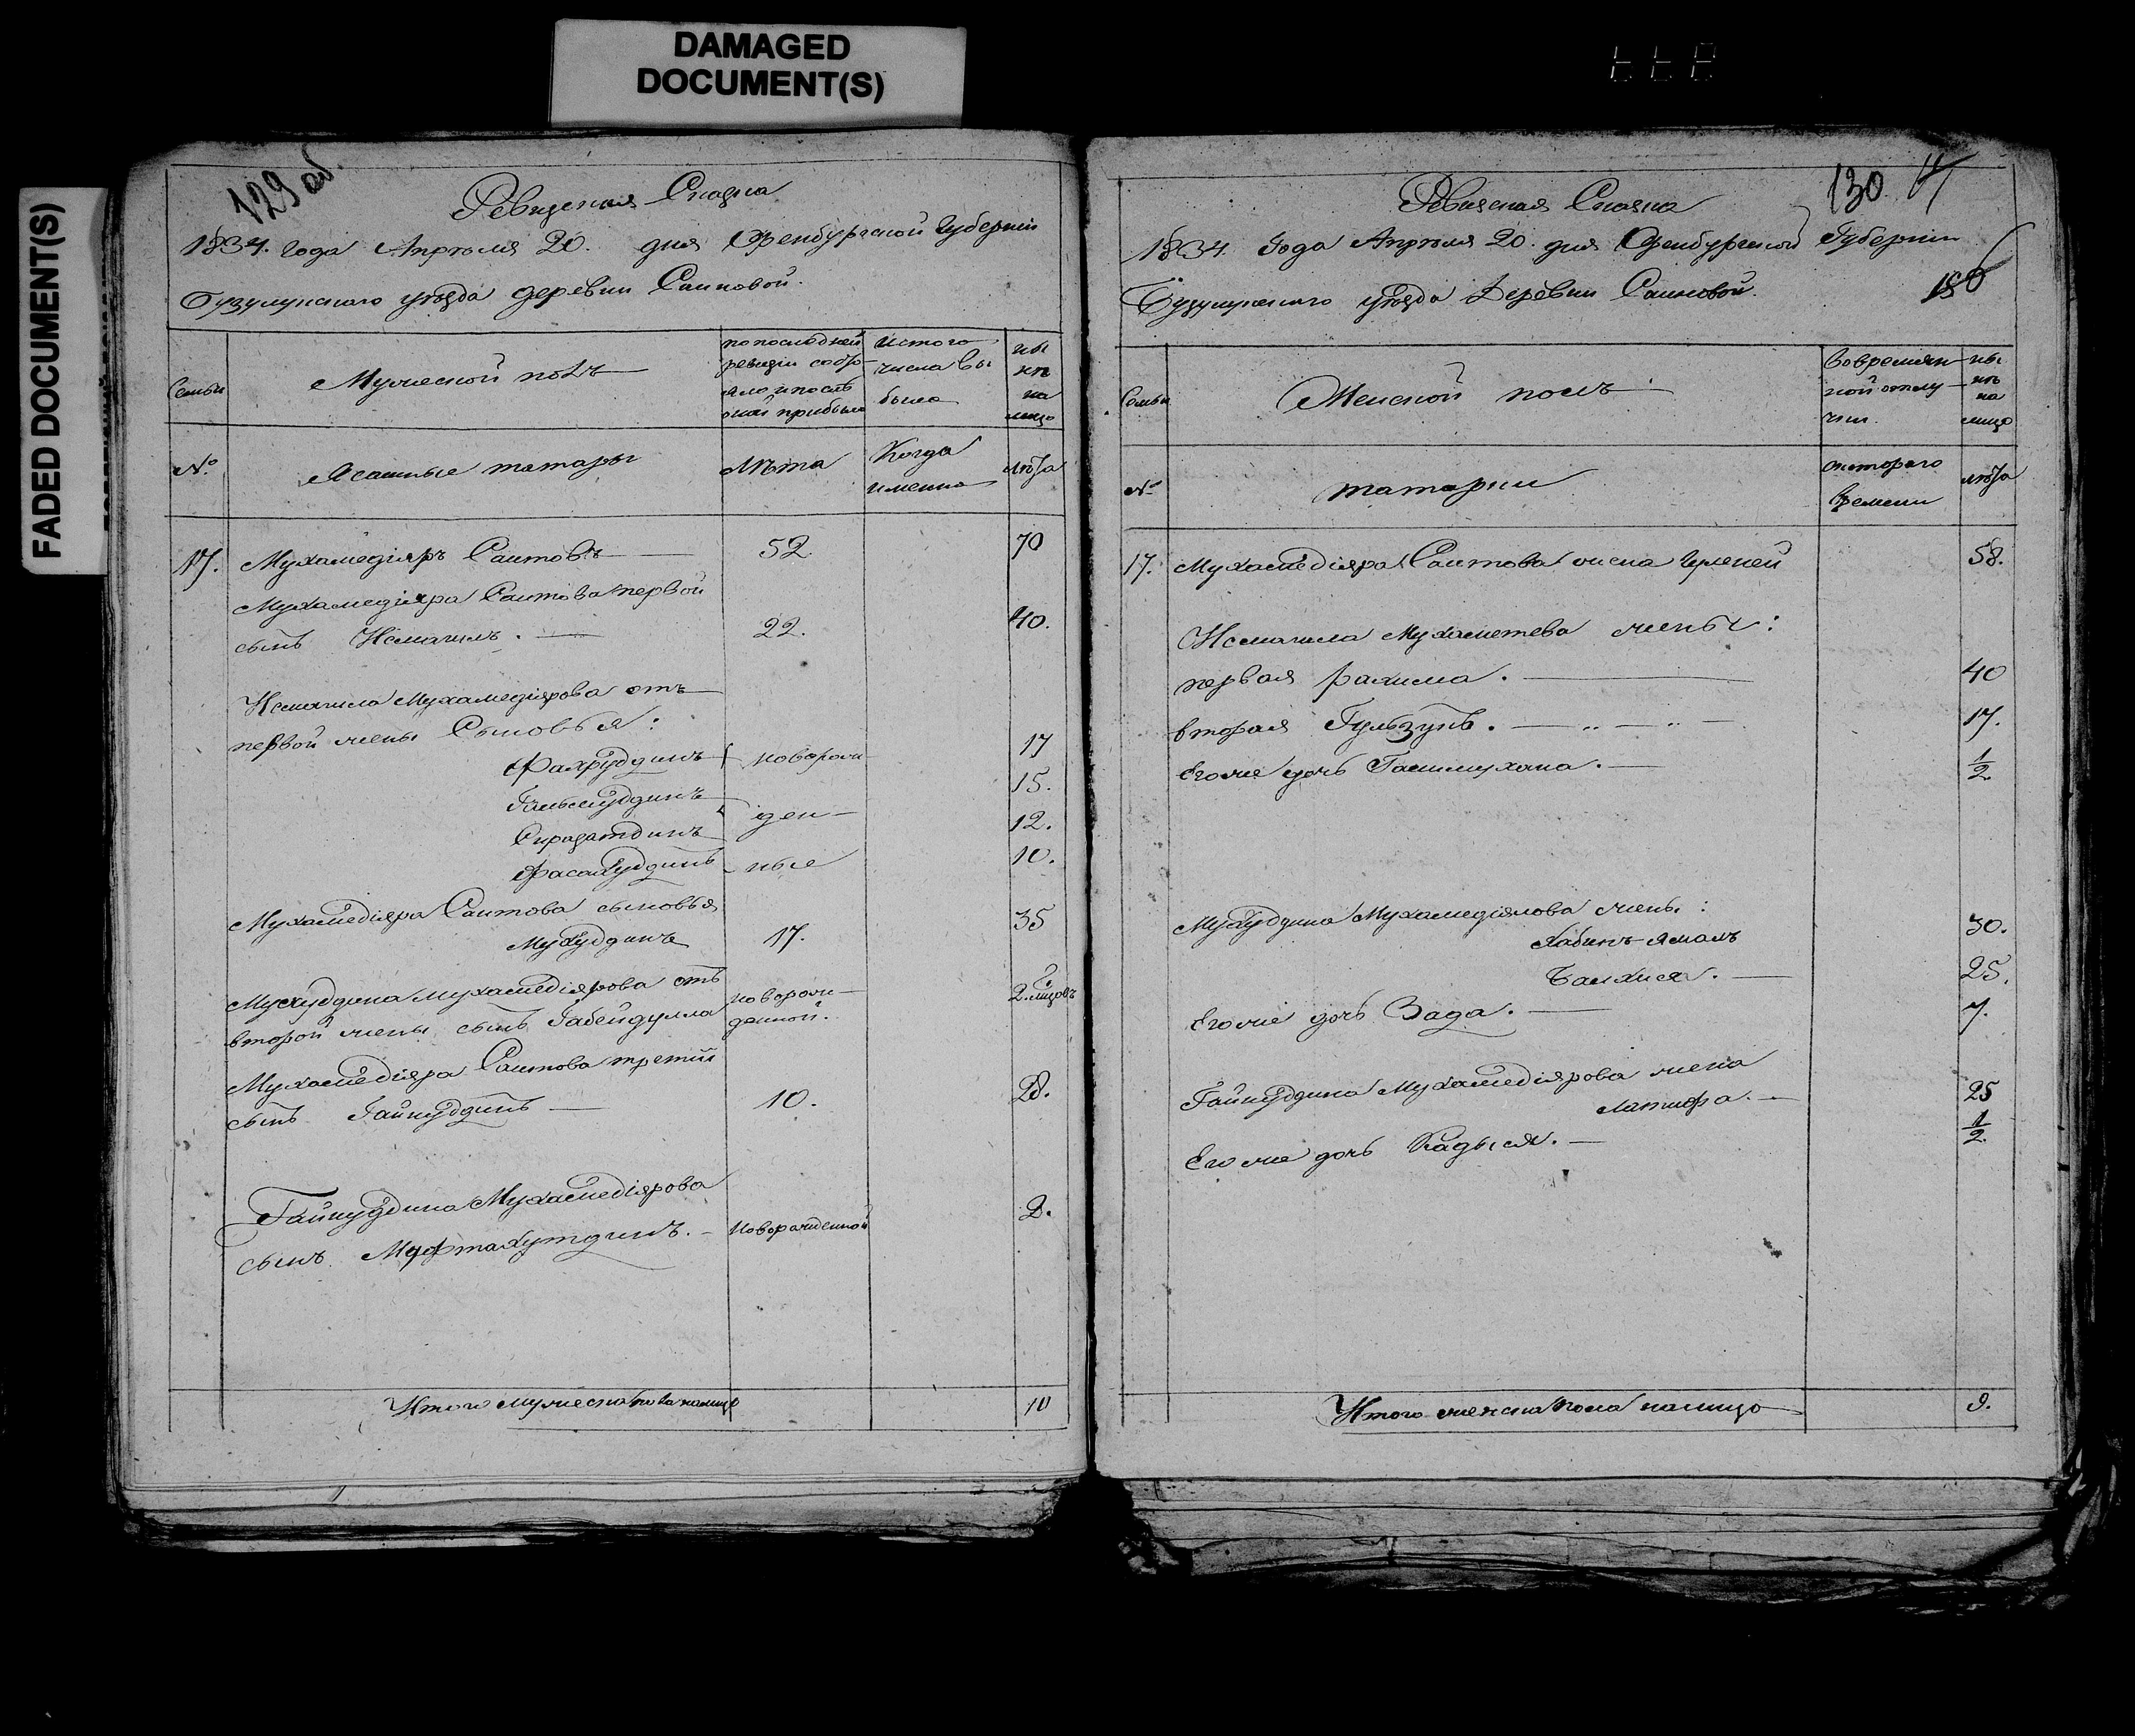 DAMAGED
DOCUMENT(S)
FADED DOCUMENT(S)
129 об.
Ревизская Сказка
1834. года Апреля 20. дня Оренбургской Губернии
Бузулукского уѣзда деревни Саиновой.
Семьи
Мужеской полъ
по последней
ревизіи состо-
яло и послѣ
оной прибыло
Изтого
числа вы
было
ны
нѣ
на
лицо
№
Ясашные татары
Лѣта
Когда
именно
лѣта
17. Мухамедіяръ Саитовъ 52 70
Мухамедіяра Саитова первой
сынъ Исмагилъ. 22. 40.
Исмагила Мухамедіярова отъ
первой жены Сыновья:
Фахруддинъ новорож 17
15.
Сиразатдинъ ден 12.
Фасахуддинъ ные 10.
Мухамедіяра Саитова сыновья
Мухуддинъ 17. 35
Мухуддина Мухамедіярова отъ новорож-
второй жены сынъ Габейдулла денной.
Мухамедіяра Саитова третій
сынъ Гайнуддинъ 10. 28.
Гайнуддина Мухамедіярова
сынъ Мифтахутдинъ. новорожденной 2.
Итого мужеска пола налицо 10
130
Ревизская Сказка
1834. Года Апреля 20. дня Оренбургской Губернии
Бузулукского уѣзда Деревни Саиновой.
Семьи
Женской полъ
Вовремян-
ной отлу-
чки.
ны
нѣ
на
лицо
№
татарки
скотораго
времени
лѣта
17. Мухамедіяра Саитова жена 58.
Исмагила Мухаметева жены:
первая Рахима. 40
вторая Гульзунъ. 17.
Егоже дочь Галимухана. 1/2
Мухуддина Мухамедіялова жены:
Хабинъ-Ямалъ 30.
25.
Егоже дочь Зада. 7.
Гайнуддина Мухамедіярова жена
Латифа. 25
Егоже дочь Кадыся. 1/2
Итого женска пола налицо 9.